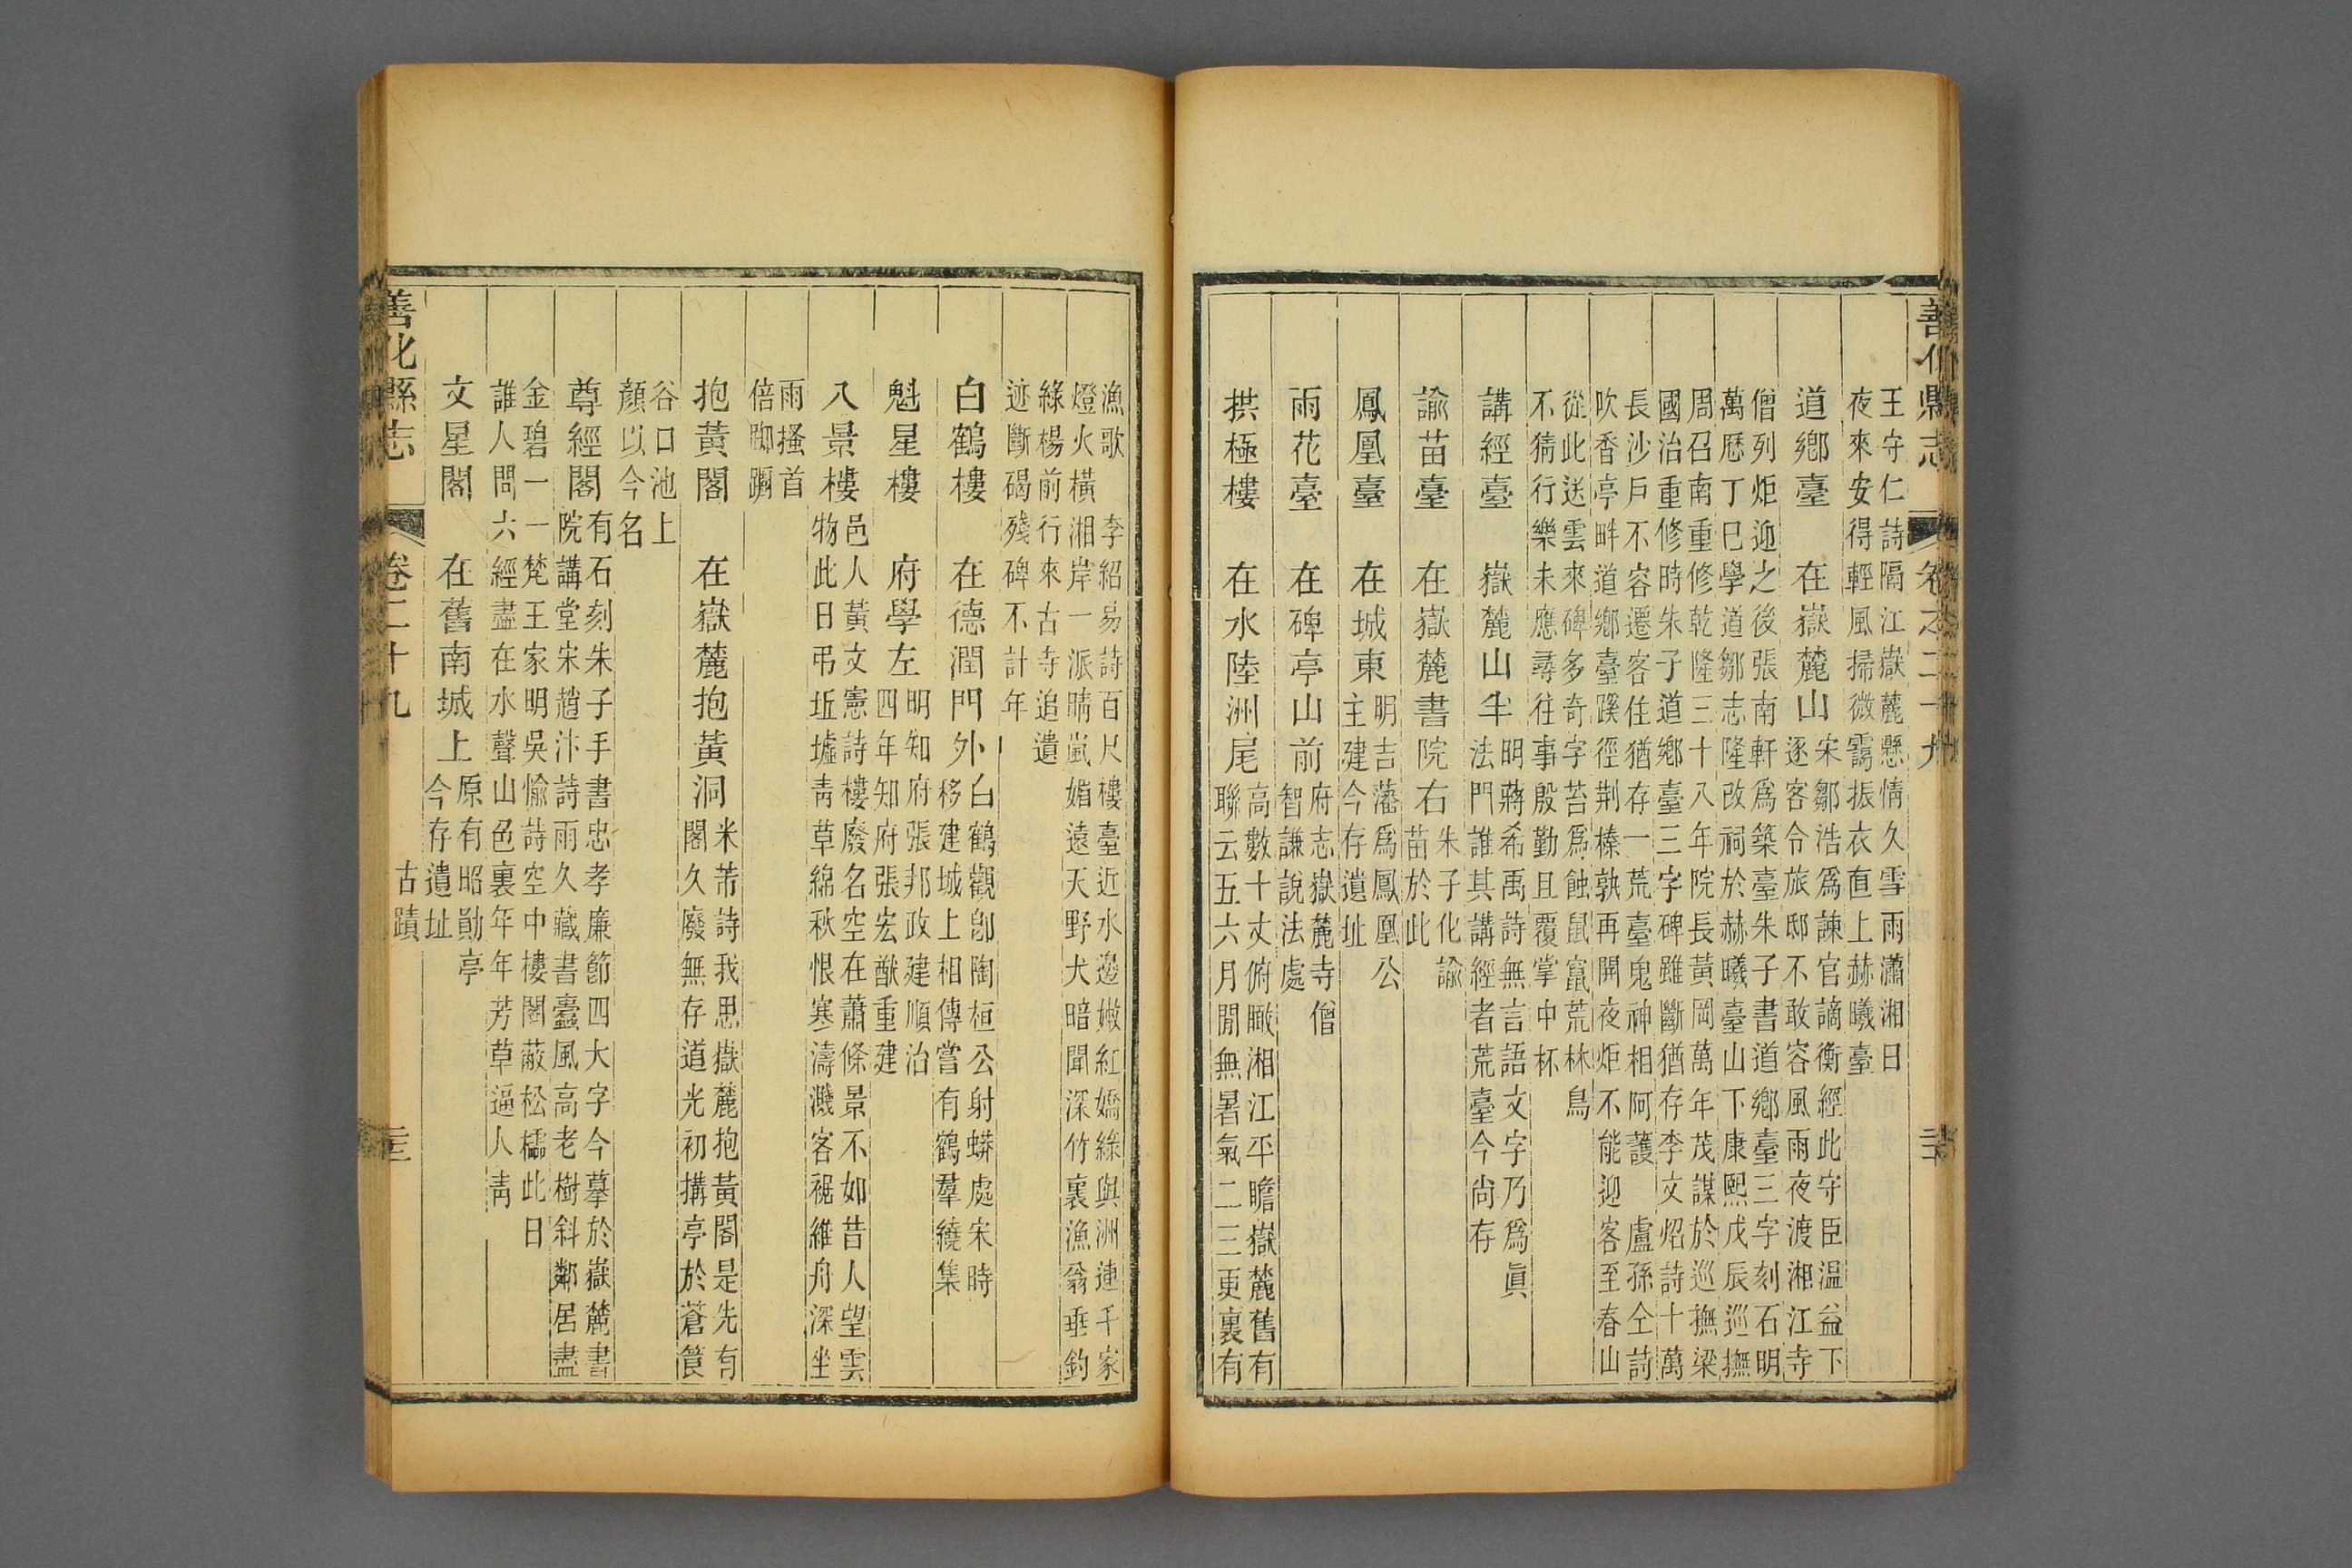 善化縣志
卷之二十九
王守仁詩隔江嶽麓懸情久雪雨瀟湘日
夜來安得輕風掃微靄振衣直上赫曦臺
道鄉臺
在嶽麓山
宋鄒浩爲諫官謫衡經此守臣温益下
逐客令旅邸不敢容風雨夜渡湘江寺
僧列炬迎之後張南軒爲築臺朱子書道鄉臺三字刻石明
萬歷丁巳學道鄒志隆改祠於赫曦臺山下康熙戊辰巡撫
周召南重修乾隆三十八年院長黃岡萬年茂謀於巡撫梁
國治重修時朱子道鄉臺三字碑雖斷猶存李文炤詩十萬
長沙戶不容遷客住猶存一荒臺鬼神相阿護 盧孫仝詩
吹香亭畔道鄉臺蹊徑荆榛孰再開夜炬不能迎客至春山
從此送雲來碑多奇字苔爲蝕鼠竄荒林鳥
不猜行樂未應尋往事殷勤且覆掌中杯
講經臺
嶽麓山半
明蔣希禹詩無言語文字乃爲眞
法門誰其講經者荒臺今尚存
諭苗臺
在嶽麓書院右
朱子化諭
苗於此
鳳凰臺
在城東
明吉藩爲鳳凰公
主建今存遺址
雨花臺
在碑亭山前
府志嶽麓寺僧
智謙說法處
拱極樓
在水陸洲尾
高數十丈俯瞰湘江平瞻嶽麓舊有
聯云五六月閒無暑氣二三更裏有
漁歌 李紹易詩百尺樓臺近水邊嫩紅嬌綠與洲連千家
燈火橫湘岸一派晴嵐媚遠天野犬暗聞深竹裏漁翁垂釣
綠楊前行來古寺追遺
迹斷碣殘碑不計年
白鶴樓
在德潤門外
白鶴觀卽陶桓公射蟒處宋時
移建城上相傳嘗有鶴羣繞集
魁星樓
府學左
明知府張邦政建順治
四年知府張宏猷重建
八景樓
邑人黃文憲詩樓廢名空在蕭條景不如昔人望雲
物此日弔坵墟靑草綿秋恨寒濤濺客裾維舟深坐
雨搔首
倍踟躕
抱黃閣
在嶽麓抱黃洞
米芾詩我思嶽麓抱黃閣是先有
閣久廢無存道光初搆亭於蒼筤
谷口池上
顏以今名
尊經閣
有石刻朱子手書忠孝廉節四大字今摹於嶽麓書
院講堂宋趙汴詩雨久藏書蠹風高老樹斜鄰居盡
金碧一一梵王家明吳愉詩空中樓閣蔽松檽此日
誰人問六經盡在水聲山色裏年年芳草逼人靑
文星閣
在舊南城上
原有昭勛亭
今存遺址
善化縣志
卷二十九
古蹟